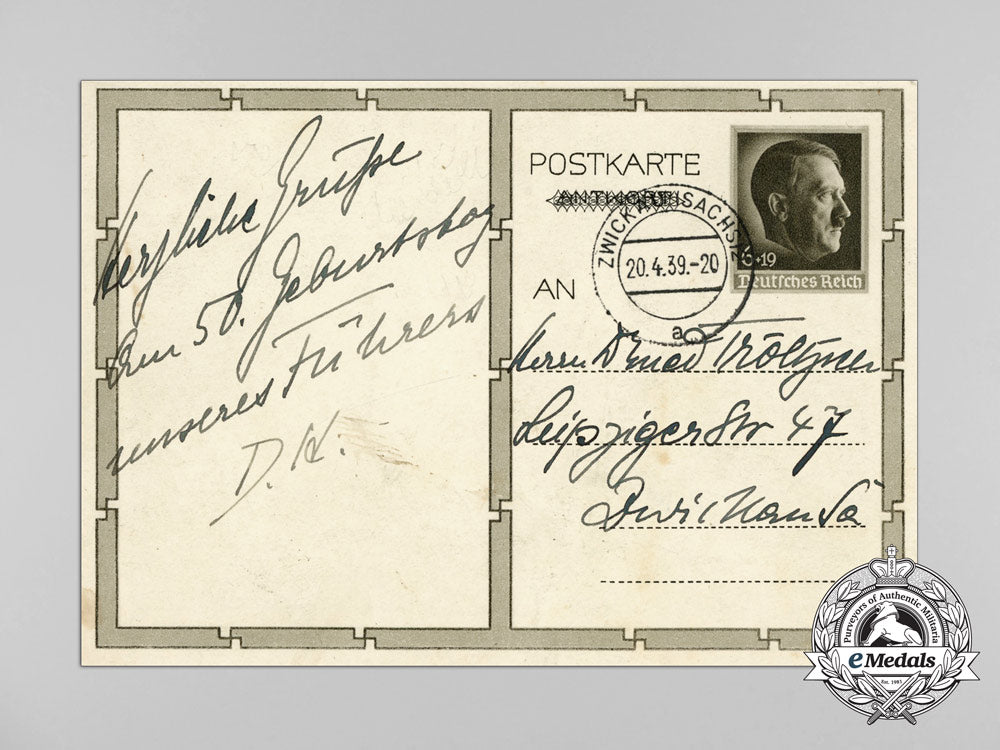 Herzliche Grüße
zum 50. Geburtstag
unseres Führers
D. K.
POSTKARTE
ANTWORT
ZWICKAU (SACHS) 2
20.4.39.-20
a
6+19
Deutsches Reich
AN
Herrn Tröltzner
Leipziger Str 47
Zwickau Sa
Purveyors of Authentic Militaria
eMedals
Est. 1985